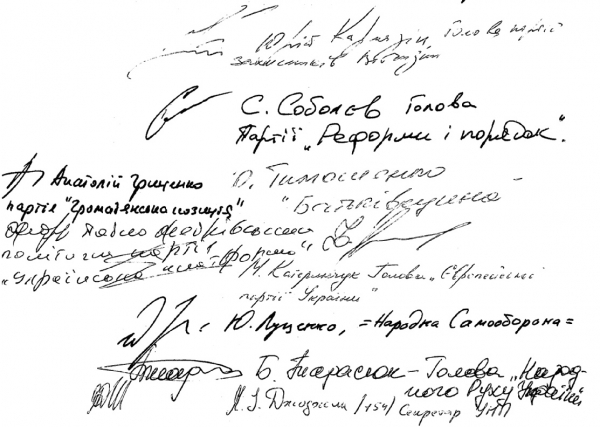 Юрій Кармазін Голова партії
захисників Вітчизни
С. Соболєв Голова
Партії „Реформи і порядок".
Анатолій Гриценко
партія "Громадянська позиція"
О. Тимошенко
"Батьківщина"
Павло Жебрівський
політична партії
„Українська платформа"
М. Катеринчук Голова „Європейської
партії України"
Ю. Луценко, =Народна Самооборона=
Б. Тарасюк - Голова „Народ-
ного Руху України
Секретар УНП